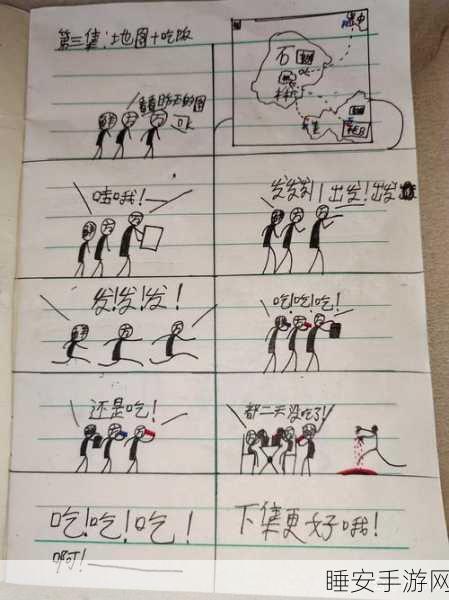 第三集:地图+吃饭
看看昨天的图
OK
石
哇哦!
发发发!出发!出发
发!发!发!
吃!吃!吃!
还是吃!
都二天没吃了!
吃!吃!吃!
啊!
下集更好哦!
睡安手游网